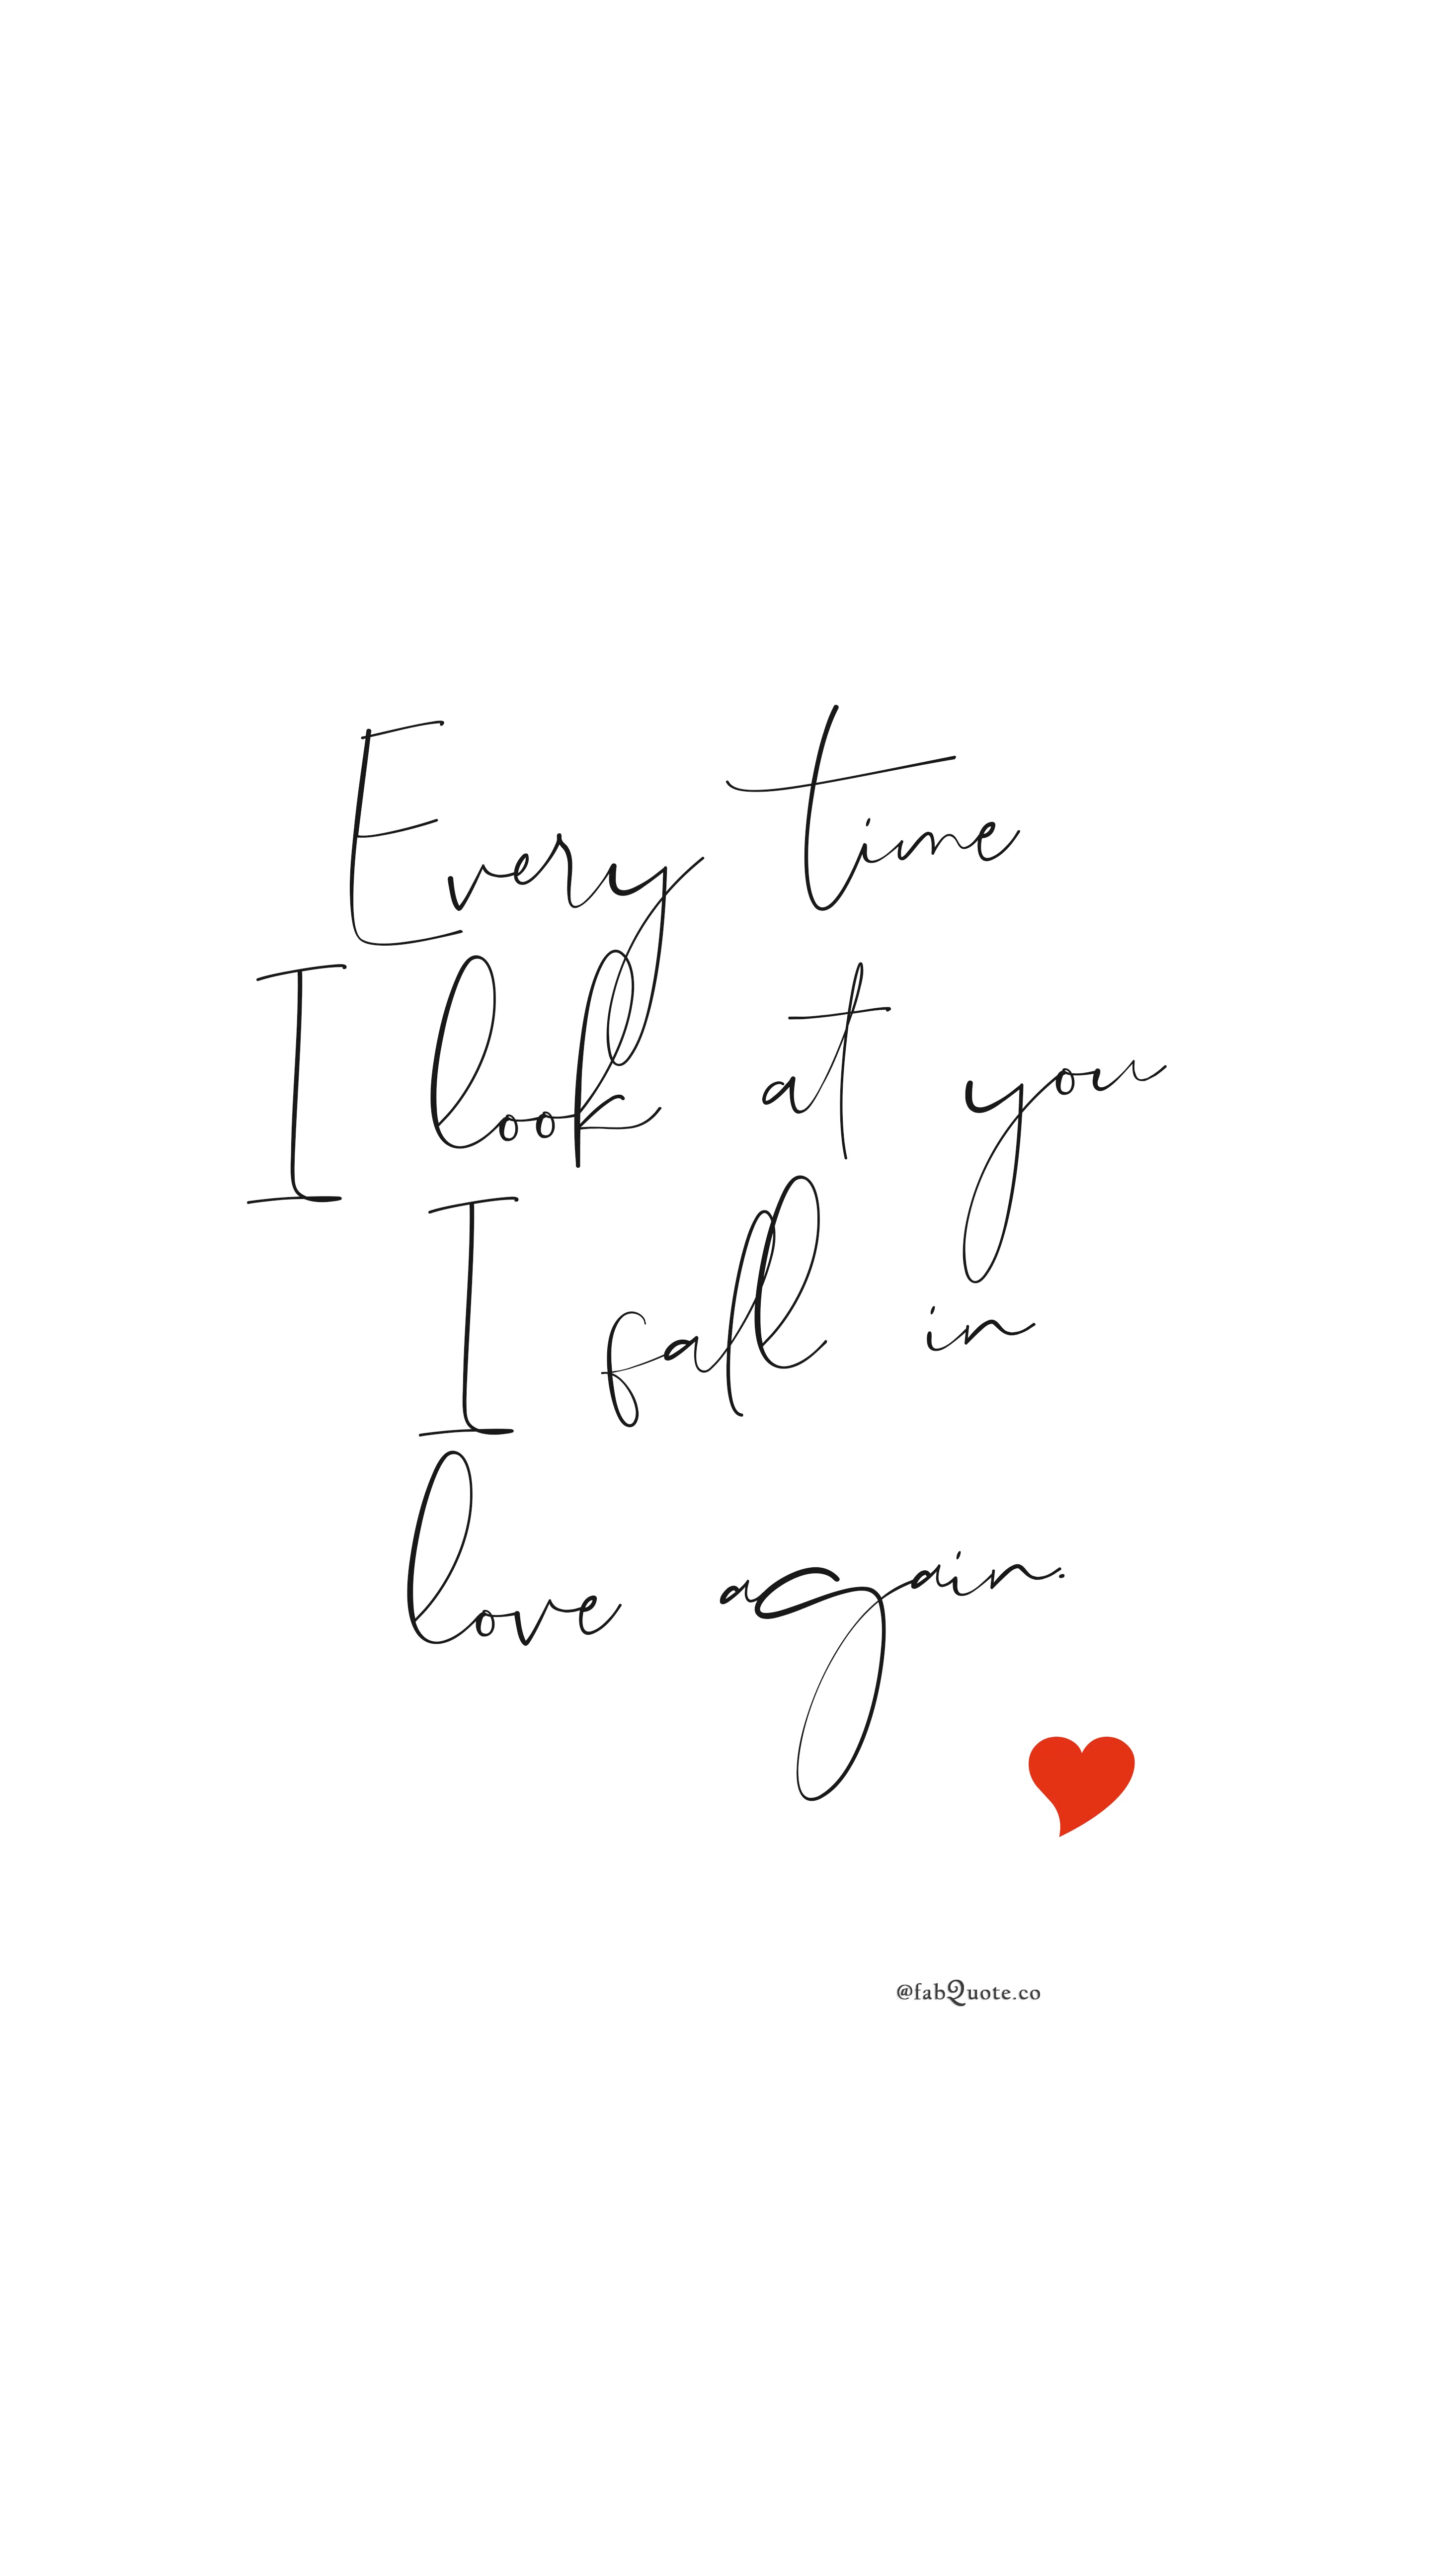 Every time
I look at you
I fall in
love again.
@fabQuote.co